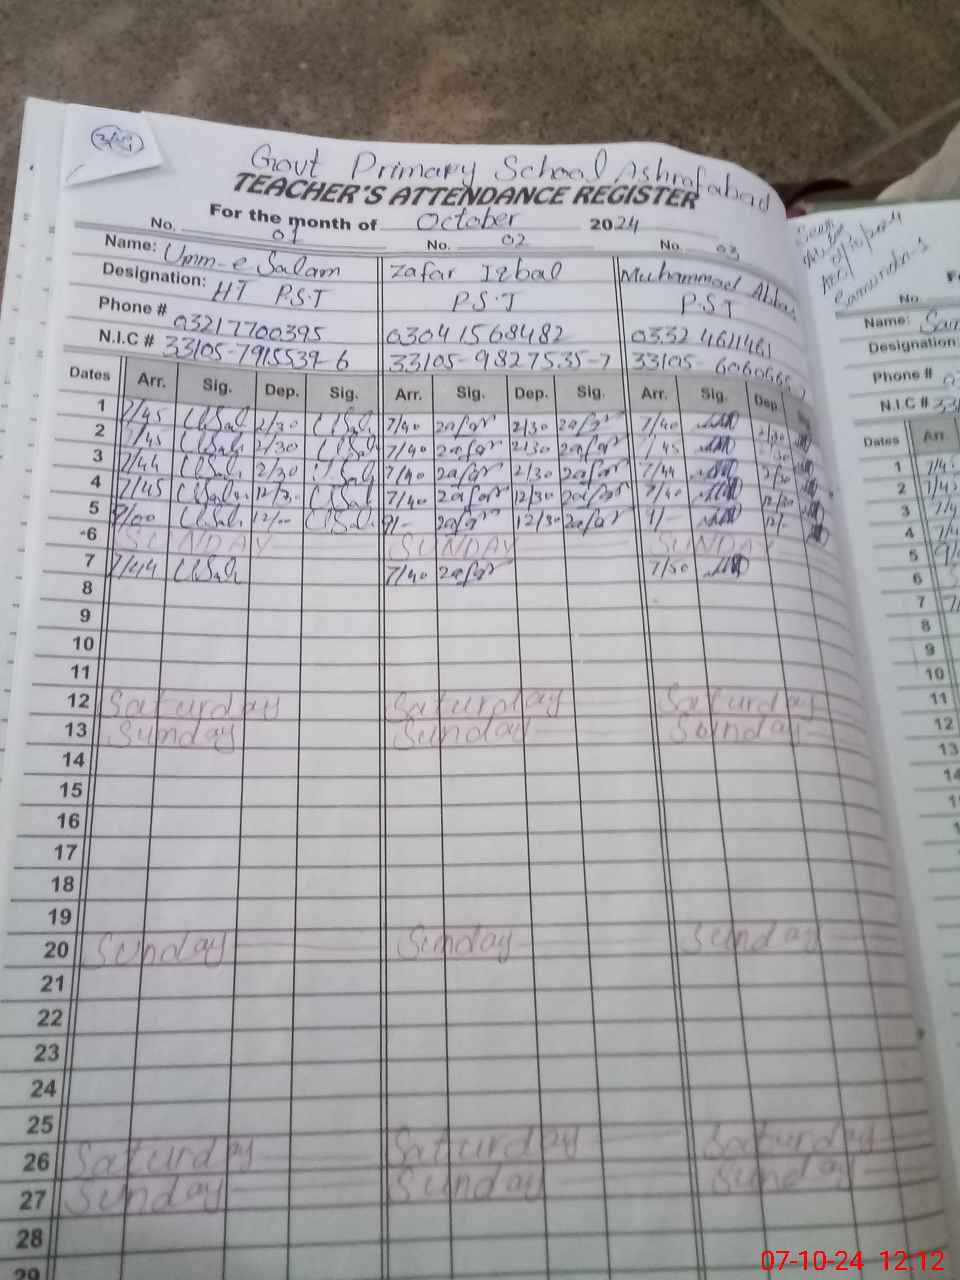 Govt Primary School Ashrafabad
TEACHER'S ATTENDANCE REGISTER
For the month of October 2024
No. 01 No. 02 No. 03
Name: Umm-e Salam Zafar Iqbal Muhammad Abbas
Designation: HT P.S.T P.S.T P.S.T
Phone # 03217700395 03041568482 03324611461
N.I.C # 33105-7915539-6 33105-9827535-7 33105-
Dates Arr. Sig. Dep. Sig. Arr. Sig. Dep. Sig. Arr. Sig. Dep.
1 7/45 USal 2/30 USal 7/40 zafar 2/30 zafar 7/40 2/30
2 7/45 USal 2/30 USal 7/40 zafar 2/30 zafar 7/45 2/30
3 7/44 USal 2/30 USal 7/40 zafar 2/30 zafar 7/44 2/30
4 7/45 USal 12/30 USal 7/40 zafar 12/30 zafar 7/40 12/30
5 9/00 USal 12/- USal 9/- zafar 12/30 zafar 9/- 12/-
6 SUNDAY SUNDAY SUNDAY
7 7/44 USal 7/40 zafar 7/50
8
9
10
11
12 Saturday Saturday Saturday
13 Sunday Sunday Sunday
14
15
16
17
18
19
20 Sunday Sunday Sunday
21
22
23
24
25
26 Saturday Saturday Saturday
27 Sunday Sunday Sunday
28
29
No.
Name:
Designation
Phone #
N.I.C #
Dates Arr.
1
2
3
4
5
6
7
8
9
10
11
12
13
14
07-10-24 12:12